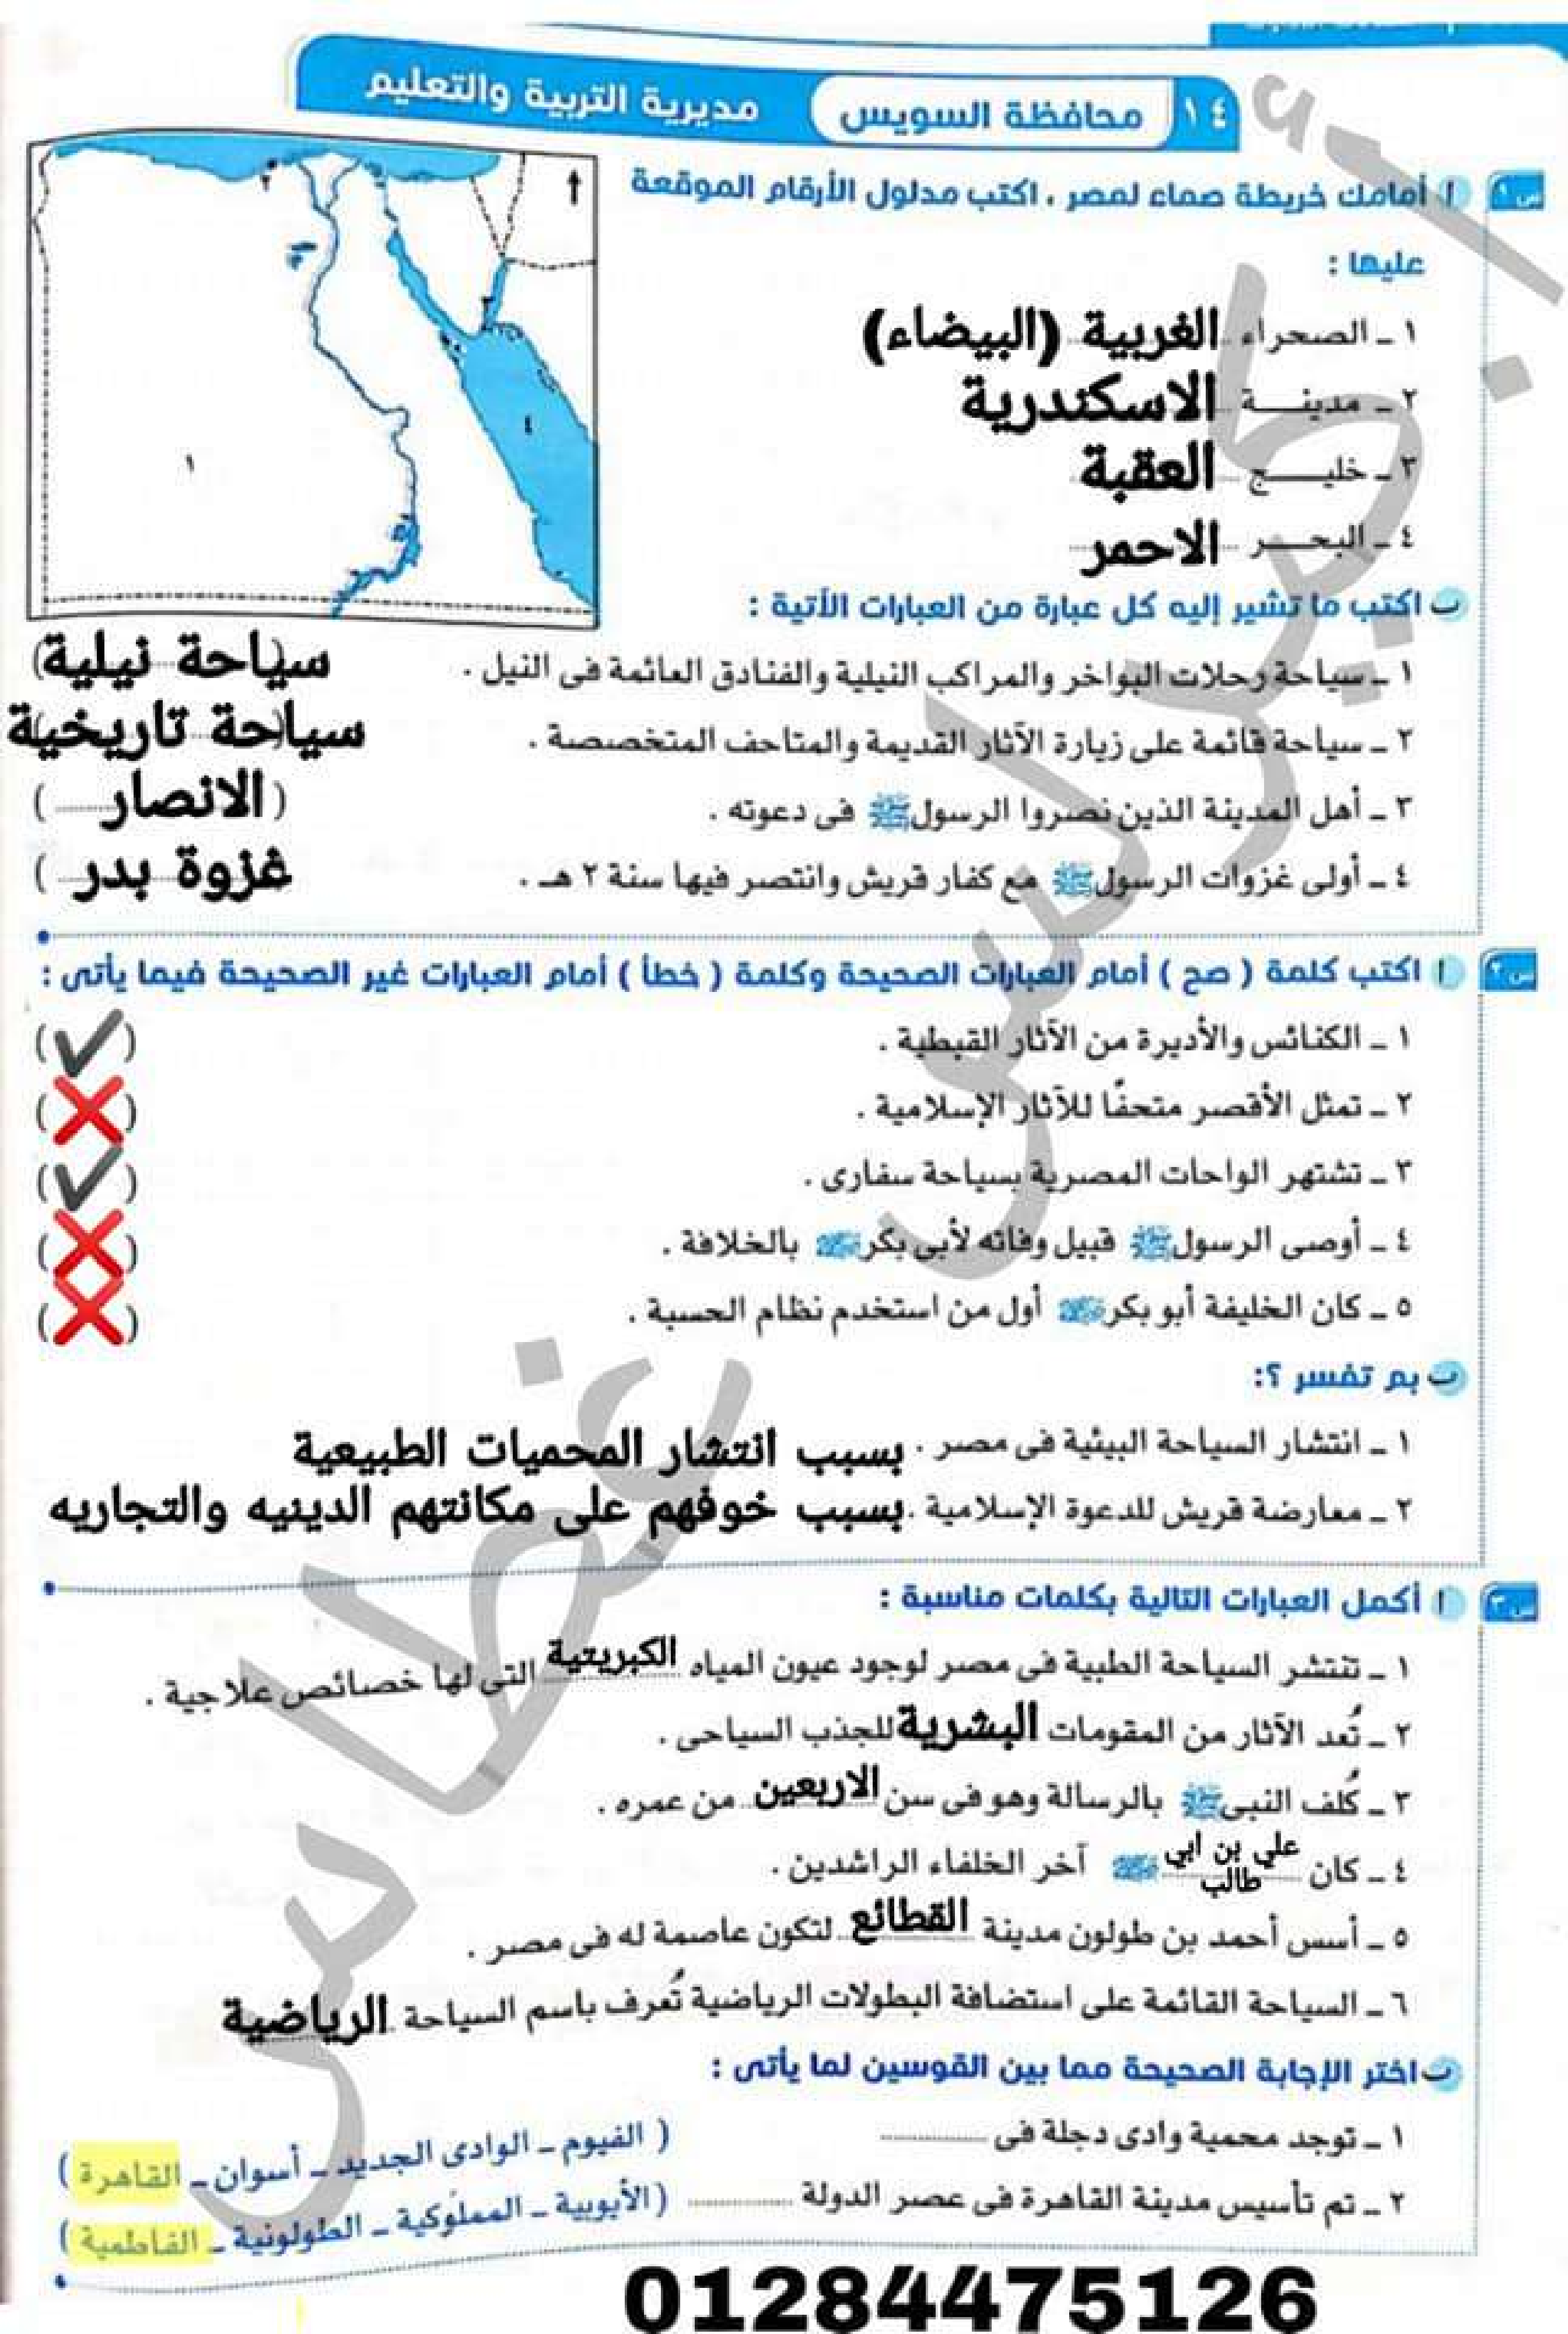 ١٤ محافظة السويس مديرية التربية والتعليم
س١ أ أمامك خريطة صماء لمصر ، اكتب مدلول الأرقام الموقعة
عليها :
١ ـ الصحراء الغربية (البيضاء)
٢ ـ مدينـــة الاسكندرية
٣ ـ خليـــج العقبة
٤ ـ البحـــر الاحمر
١
٢
٣
٤
ب اكتب ما تشير إليه كل عبارة من العبارات الأتية :
١ ـ سياحة رحلات البواخر والمراكب النيلية والفنادق العائمة فى النيل . (سياحة نيلية)
٢ ـ سياحة قائمة على زيارة الآثار القديمة والمتاحف المتخصصة . (سياحة تاريخية)
٣ ـ أهل المدينة الذين نصروا الرسول ﷺ فى دعوته . (الانصار)
٤ ـ أولى غزوات الرسول ﷺ مع كفار قريش وانتصر فيها سنة ٢ هـ . (غزوة بدر)
س٢ أ اكتب كلمة ( صح ) أمام العبارات الصحيحة وكلمة ( خطأ ) أمام العبارات غير الصحيحة فيما يأتى :
١ ـ الكنائس والأديرة من الآثار القبطية . (✔)
٢ ـ تمثل الأقصر متحفًا للآثار الإسلامية . (❌)
٣ ـ تشتهر الواحات المصرية بسياحة سفارى . (✔)
٤ ـ أوصى الرسول ﷺ قبيل وفاته لأبى بكر رضي الله عنه بالخلافة . (❌)
٥ ـ كان الخليفة أبو بكر رضي الله عنه أول من استخدم نظام الحسبة . (❌)
ب بم تفسر ؟:
١ ـ انتشار السياحة البيئية فى مصر . بسبب انتشار المحميات الطبيعية
٢ ـ معارضة قريش للدعوة الإسلامية . بسبب خوفهم على مكانتهم الدينيه والتجاريه
س٣ أ أكمل العبارات التالية بكلمات مناسبة :
١ ـ تنتشر السياحة الطبية فى مصر لوجود عيون المياه الكبريتية التى لها خصائص علاجية .
٢ ـ تُعد الآثار من المقومات البشرية للجذب السياحى .
٣ ـ كُلف النبى ﷺ بالرسالة وهو فى سن الاربعين من عمره .
٤ ـ كان علي بن ابي طالب رضي الله عنه آخر الخلفاء الراشدين .
٥ ـ أسس أحمد بن طولون مدينة القطائع لتكون عاصمة له فى مصر .
٦ ـ السياحة القائمة على استضافة البطولات الرياضية تُعرف باسم السياحة الرياضية
ب اختر الإجابة الصحيحة مما بين القوسين لما يأتى :
١ ـ توجد محمية وادى دجلة فى ............ ( الفيوم ـ الوادى الجديد ـ أسوان ـ القاهرة )
٢ ـ تم تأسيس مدينة القاهرة فى عصر الدولة ............ ( الأيوبية ـ المملوكية ـ الطولونية ـ الفاطمية )
01284475126